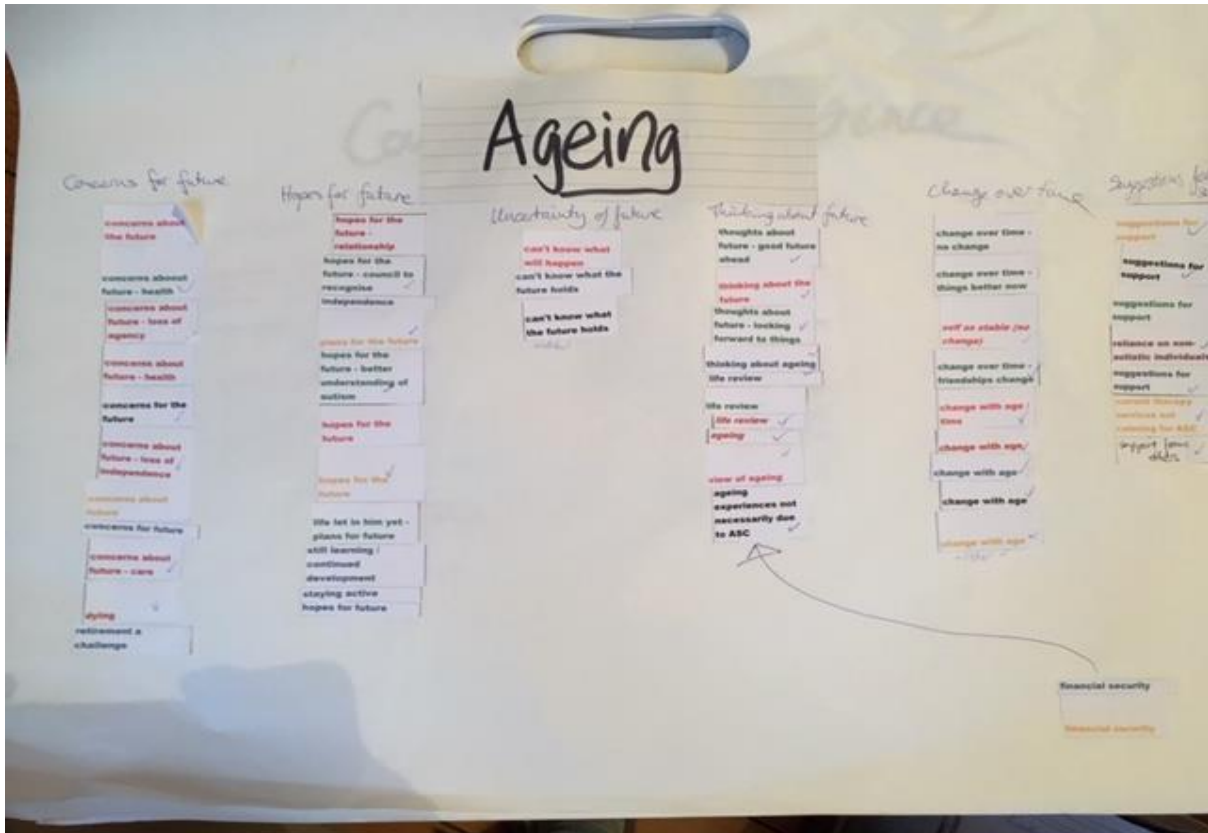 Ageing
Concerns for future
concerns about
the future
concerns aboout
future - health
concerns about
future - loss of
agency
concerns about
future - health
concerns for the
future
concerns about
future - loss of
independence
concerns about
future
concerns for future
concerns about
future - care
dying
retirement a
challenge
Hopes for future
hopes for the
future -
relationship
hopes for the
future - council to
recognise
independence
plans for the future
hopes for the
future - better
understanding of
autism
hopes for the
future
hopes for the
future
life let in him yet -
plans for future
still learning /
continued
development
staying active
hopes for future
Uncertainty of future
can't know what
will happen
can't know what the
future holds
can't know what
the future holds
Thinking about future
thoughts about
future - good future
ahead
thinking about the
future
thoughts about
future - looking
forward to things
thinking about ageing
life review
life review
life review
ageing
view of ageing
ageing
experiences not
necessarily due
to ASC
Change over time
change over time -
no change
change over time -
things better now
self as stable (no
change)
change over time -
friendships change
change with age /
time
change with age/
change with age
change with age
change with age
Suggestions
suggestions for
support
suggestions for
support
suggestions for
support
reliance on non-
autistic individuals
suggestions for
support
current therapy
services not
catering for ASC
support from
financial security
financial security